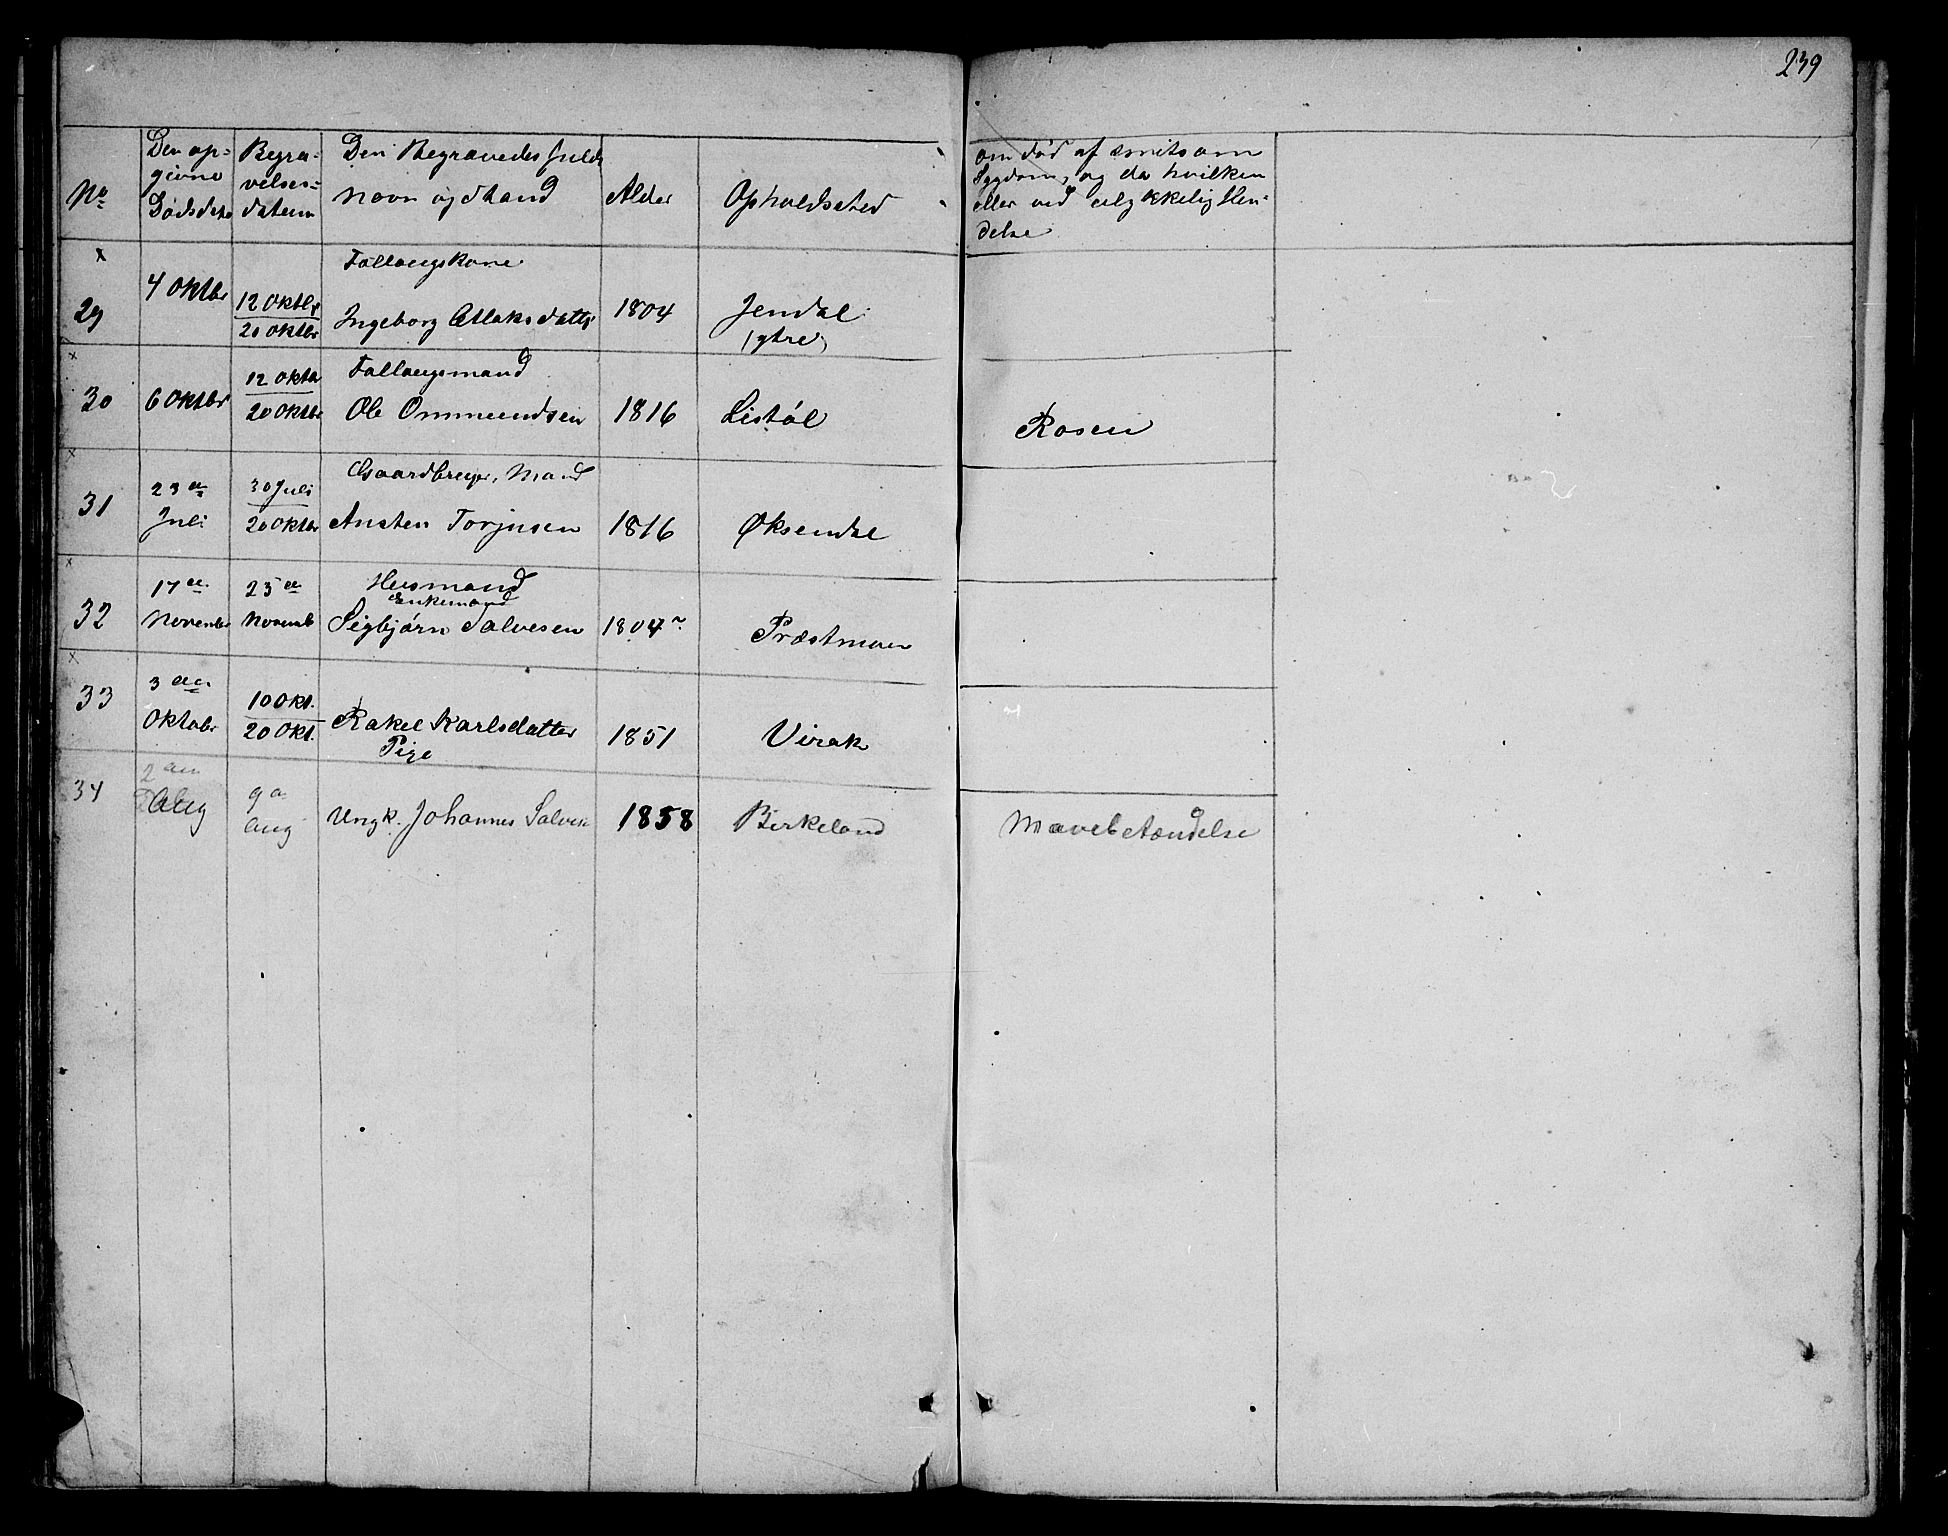 239
No Den op= Begra= Den Begravedes fulde Alder Opholdssted om død af smitsom
givne velses= Navn og Stand Sygdom, og da hvilken
Dødsdato datum eller ved ulykkelig Hæn-
delse
x Follaugskone
29 4 Oktbr 12 Oktbr Ingeborg Atlaksdatter 1804 Jendal
20 Oktbr (ytre)
x 12 Oktb Follaugsmand
30 6 Oktbr 20 Oktbr Ole Ommundsen 1816 Listøl Rosen
x Gaardbruger, Mand
31 23de 30 Juli
Juli 20 Oktbr Austen Torjusen 1816 Øksendal
x 17de 25de Husmand
Enkemand
32 November Novemb Sigbjørn Salvesen 1804 Præstmoen
x
33 3die 10 Okt.
Oktober 20 Okt. Rakel Karlsdatter 1851 Virak
Pige
34 2den 9de
Aug Aug Ungk. Johannes Salves 1858 Birkeland Mavebetændelse